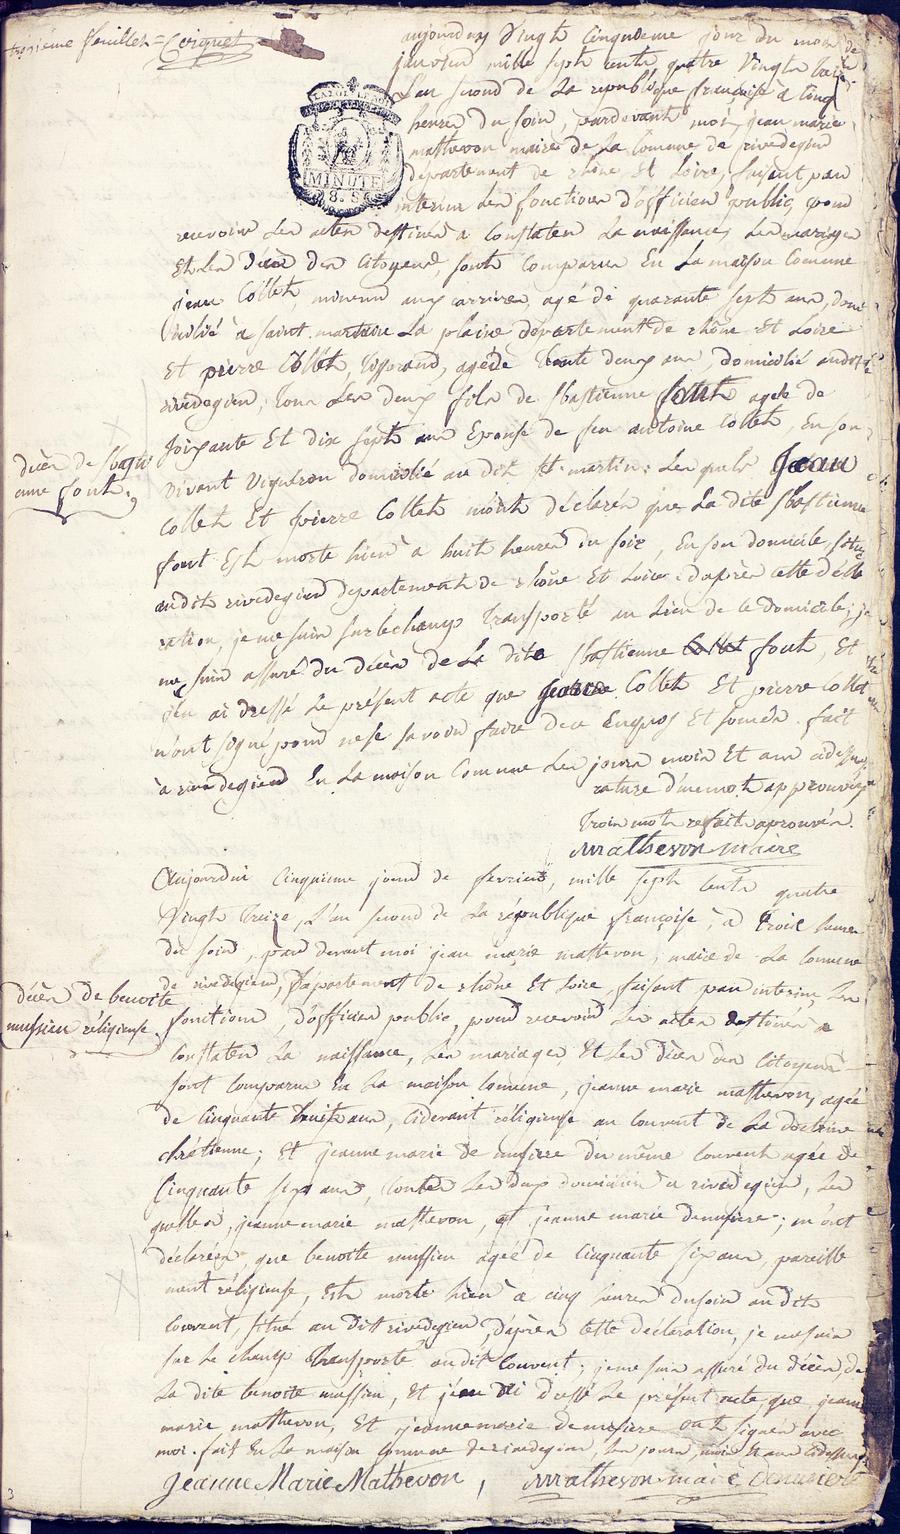 troisième feuillet = Coignet
aujourduy Vingt Cinquieme jour du mois de
janvier mille sept cents quatre Vingts treize
L'an second de La republique françoise a Cinq
heures du soir, pardevant moi jean marie
mathevon maire de La Commune de rivedegier
departement de rhône et Loire, faisant par
interim Les fonctions d'officier public, pour
LA LOI LE ROI
MINUTE
8. S
recevoir Les actes destinés a Constater La naissance, Les mariages
Et Les décès des Citoyens, sont Comparus En La maison Commune
jean Collet, mineur aux carrieres, agé de quarante sept ans, domi
cilié à saint martin La plaine département de rhône et Loire
Et pierre Collet, agé de trente deux ans, domicilié audit
rivedegier, tous Les deux fils de Sbastienne font agée de
soixante Et dix sept ans Epouse de feu antoine Collet, En son
vivant Vigneron domicilié au dit St martin: Les quels Jean
Collet Et pierre Collet m'ont déclarés que La dite Sbastienne
font Est morte hier à huit heures du soir, En son domicile situé
audit rivedegier departement de rhône Et Loire. d'après cette décla
ration, je me suis surlechamp transporté au Lieu de ce domicile, je
me suis assuré du décès de La dite Sbastienne Collet font, Et
j'en ai dressé Le présent acte que Collet Et pierre Collet
n'ont signé pour ne le savoir faire de ce Enquis Et sommés. fait
à rivedegier En La maison Commune Les jours mois Et ans cidessus
rature d'un mot approuvé
trois mots refait aprouvés.
Mathevon maire
décès de Sbasti
enne font.
Aujourdui Cinquieme jour de fevrier, mille sept cents quatre
Vingts treize, L'an second de La république françoise, à trois heures
du soir, par devant moi jean marie mathevon, maire de La Commune
de rivedegier, département de rhône Et Loire, faisant par interim, Les
fonctions, d'officier public, pour recevoir Les actes destinés a
Constater La naissance, Les mariages, Et Les décès des Citoyens
sont Comparus En La maison Comune, jeanne marie mathevon, agée
de Cinquante huit ans, cidevant réligieuse au couvent de La doctrine
chrétienne; Et jeanne marie de musiere du même couvent agée de
Cinquante six ans, toutes Les deux a rivedegier, Les
quelles, jeanne marie mathevon, et jeanne marie demusiere; m'ont
déclarées, que benoite mussieu agée de Cinquante six ans, pareille
ment réligieuse, Est morte hier à cinq heures du soir au dit
Couvent, situé au dit rivedegier, d'après cette déclaration, je me suis
sur Le champ transporté audit Couvent; je me suis assuré du décès, de
La dite benoite mussieu, Et j'en ai dressé Le présent acte, que jeanne
marie mathevon, Et jeannemarie demusiere ont signées avec
moi. fait En La maison Commune de rivedegier, Les jours, mois Et ans cidessus
Jeanne Marie Mathevon, Mathevon maire Demusiere
décès de benoite
mussieu réligieuse